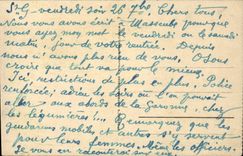 St G - vendredi soir 26 9bre. Chers tous,
Nous vous avons écrit à Masseube pour que
vous ayez mon mot le vendredi ou le samedi
matin, jour de votre rentrée. Depuis
nous n'avons plus rien de vous, Osons
croire que tout va pour le mieux.
Ici, restrictions de plus en plus. Police
renforcée; adieu les bords où l'on pouvait
aller aux abords de la Garonne chez
les légumières!... Remarquez que les
gendarmes mobiles et autres s'y servent
pour leurs femmes. Même les officiers.
Je vous en raconterai sur